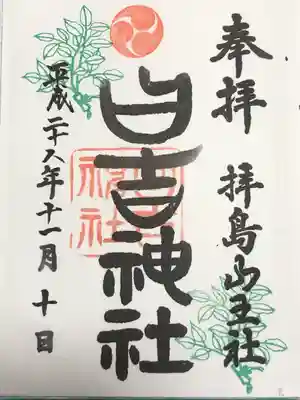 奉拝
拝島山王社
日吉神社
平成二十八年十一月十日